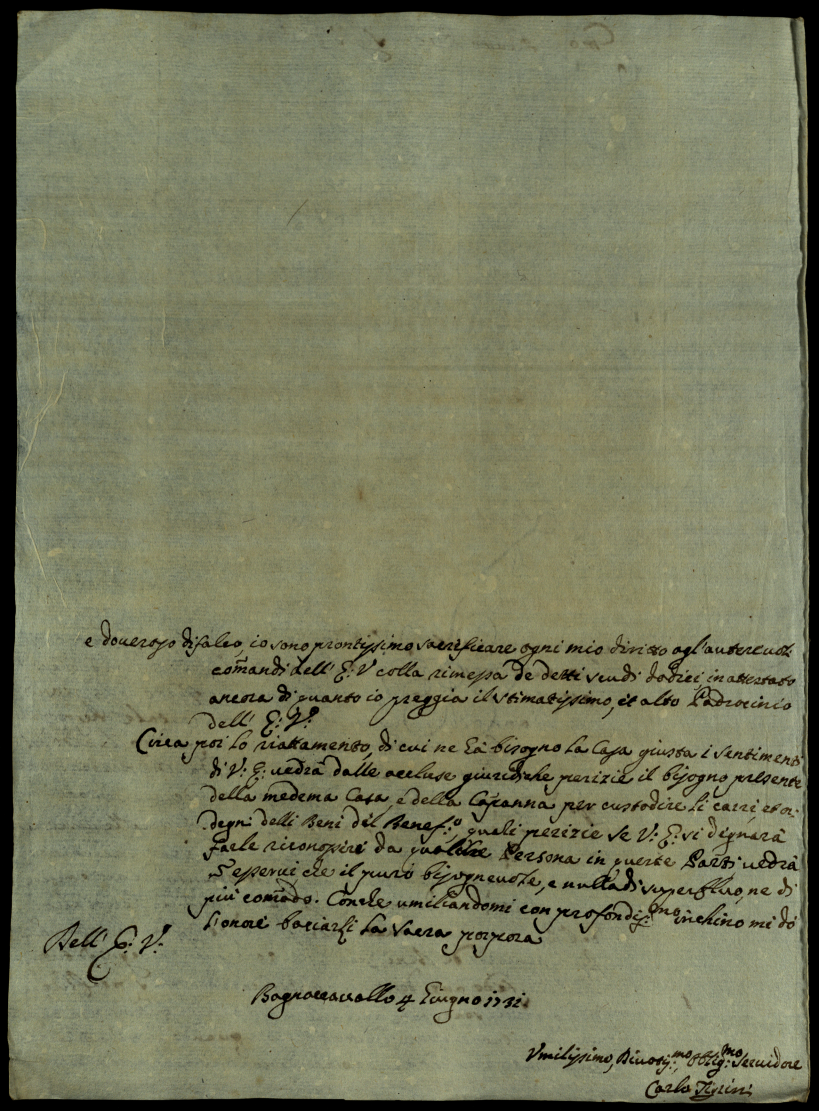 e doveroso difalco, io sono prontissimo sacrificare ogni mio diritto agl'autorevoli
com̄andi dell' E: V colla rimessa de detti scudi dodici in attestato
ancora di quanto io preggia il stimatissimo, et alto Padrocinio
dell' E: V:
Circa poi lo riattamento, di cui ne hà bisogno la Casa giusta i sentimenti
di V: E: vedrà dalle accluse giuridiche perizie il bisogno presente
della medema Casa, e della Capanna per custodire li carri, et or-
degni delli Beni del Benef:º quali perizie se V: E: si degnarà
farle riconoscire da qualche Persona in queste Parti vedrà
esservi che il puro bisognevole, e nulla di superfluo, ne di
più com̄odo. Con che umiliandomi con profondis:mo inchino mi dò
l'onore baciarli la Sacra porpora
Dell' E: V:
Bagnacavallo 4 Giugno 1731
Umilissimo, Divotis:mo, Oblig:mo Servidore
Carlo